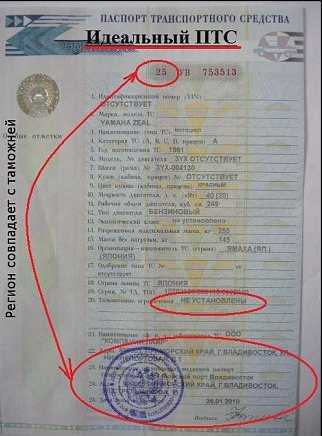 ПАСПОРТ ТРАНСПОРТНОГО СРЕДСТВА
Идеальный ПТС
25 УВ 753513
1. Идентификационный номер (VIN)
ОТСУТСТВУЕТ
2. Марка, модель ТС
YAMAHA ZEAL
3. Наименование (тип ТС) мотоцикл
4. Категория ТС (А, В, С, D, прицеп) А
5. Год изготовления ТС 1991
6. Модель, № двигателя 3YX ОТСУТСТВУЕТ
7. Шасси (рама) № 3YX-004130
8. Кузов (кабина, прицеп) № ОТСУТСТВУЕТ
9. Цвет кузова (кабины, прицепа) КРАСНЫЙ
10. Мощность двигателя, л.с. (кВт) 40 (29)
11. Рабочий объем двигателя, куб. см. 249
12. Тип двигателя БЕНЗИНОВЫЙ
13. Экологический класс не установлено
14. Разрешенная максимальная масса, кг 255
15. Масса без нагрузки, кг 145
16. Организация - изготовитель ТС (страна) ЯМАХА (ЯП.)
(ЯПОНИЯ)
17. Одобрение типа ТС №
отсутствует
18. Страна вывоза ТС ЯПОНИЯ
19. Серия, № ТД, ТПО
20. Таможенные ограничения НЕ УСТАНОВЛЕНЫ
21. Наименование ООО
22. Адрес ПРИМОРСКИЙ КРАЙ, Г.ВЛАДИВОСТОК, УЛ.
23. Наименование организации, выдавшей паспорт
порт Владивосток
24. Адрес ПРИМОРСКИЙ КРАЙ, Г.ВЛАДИВОСТОК,
25. Дата 26.01.2010
Подпись
Регион совпадает с таможней